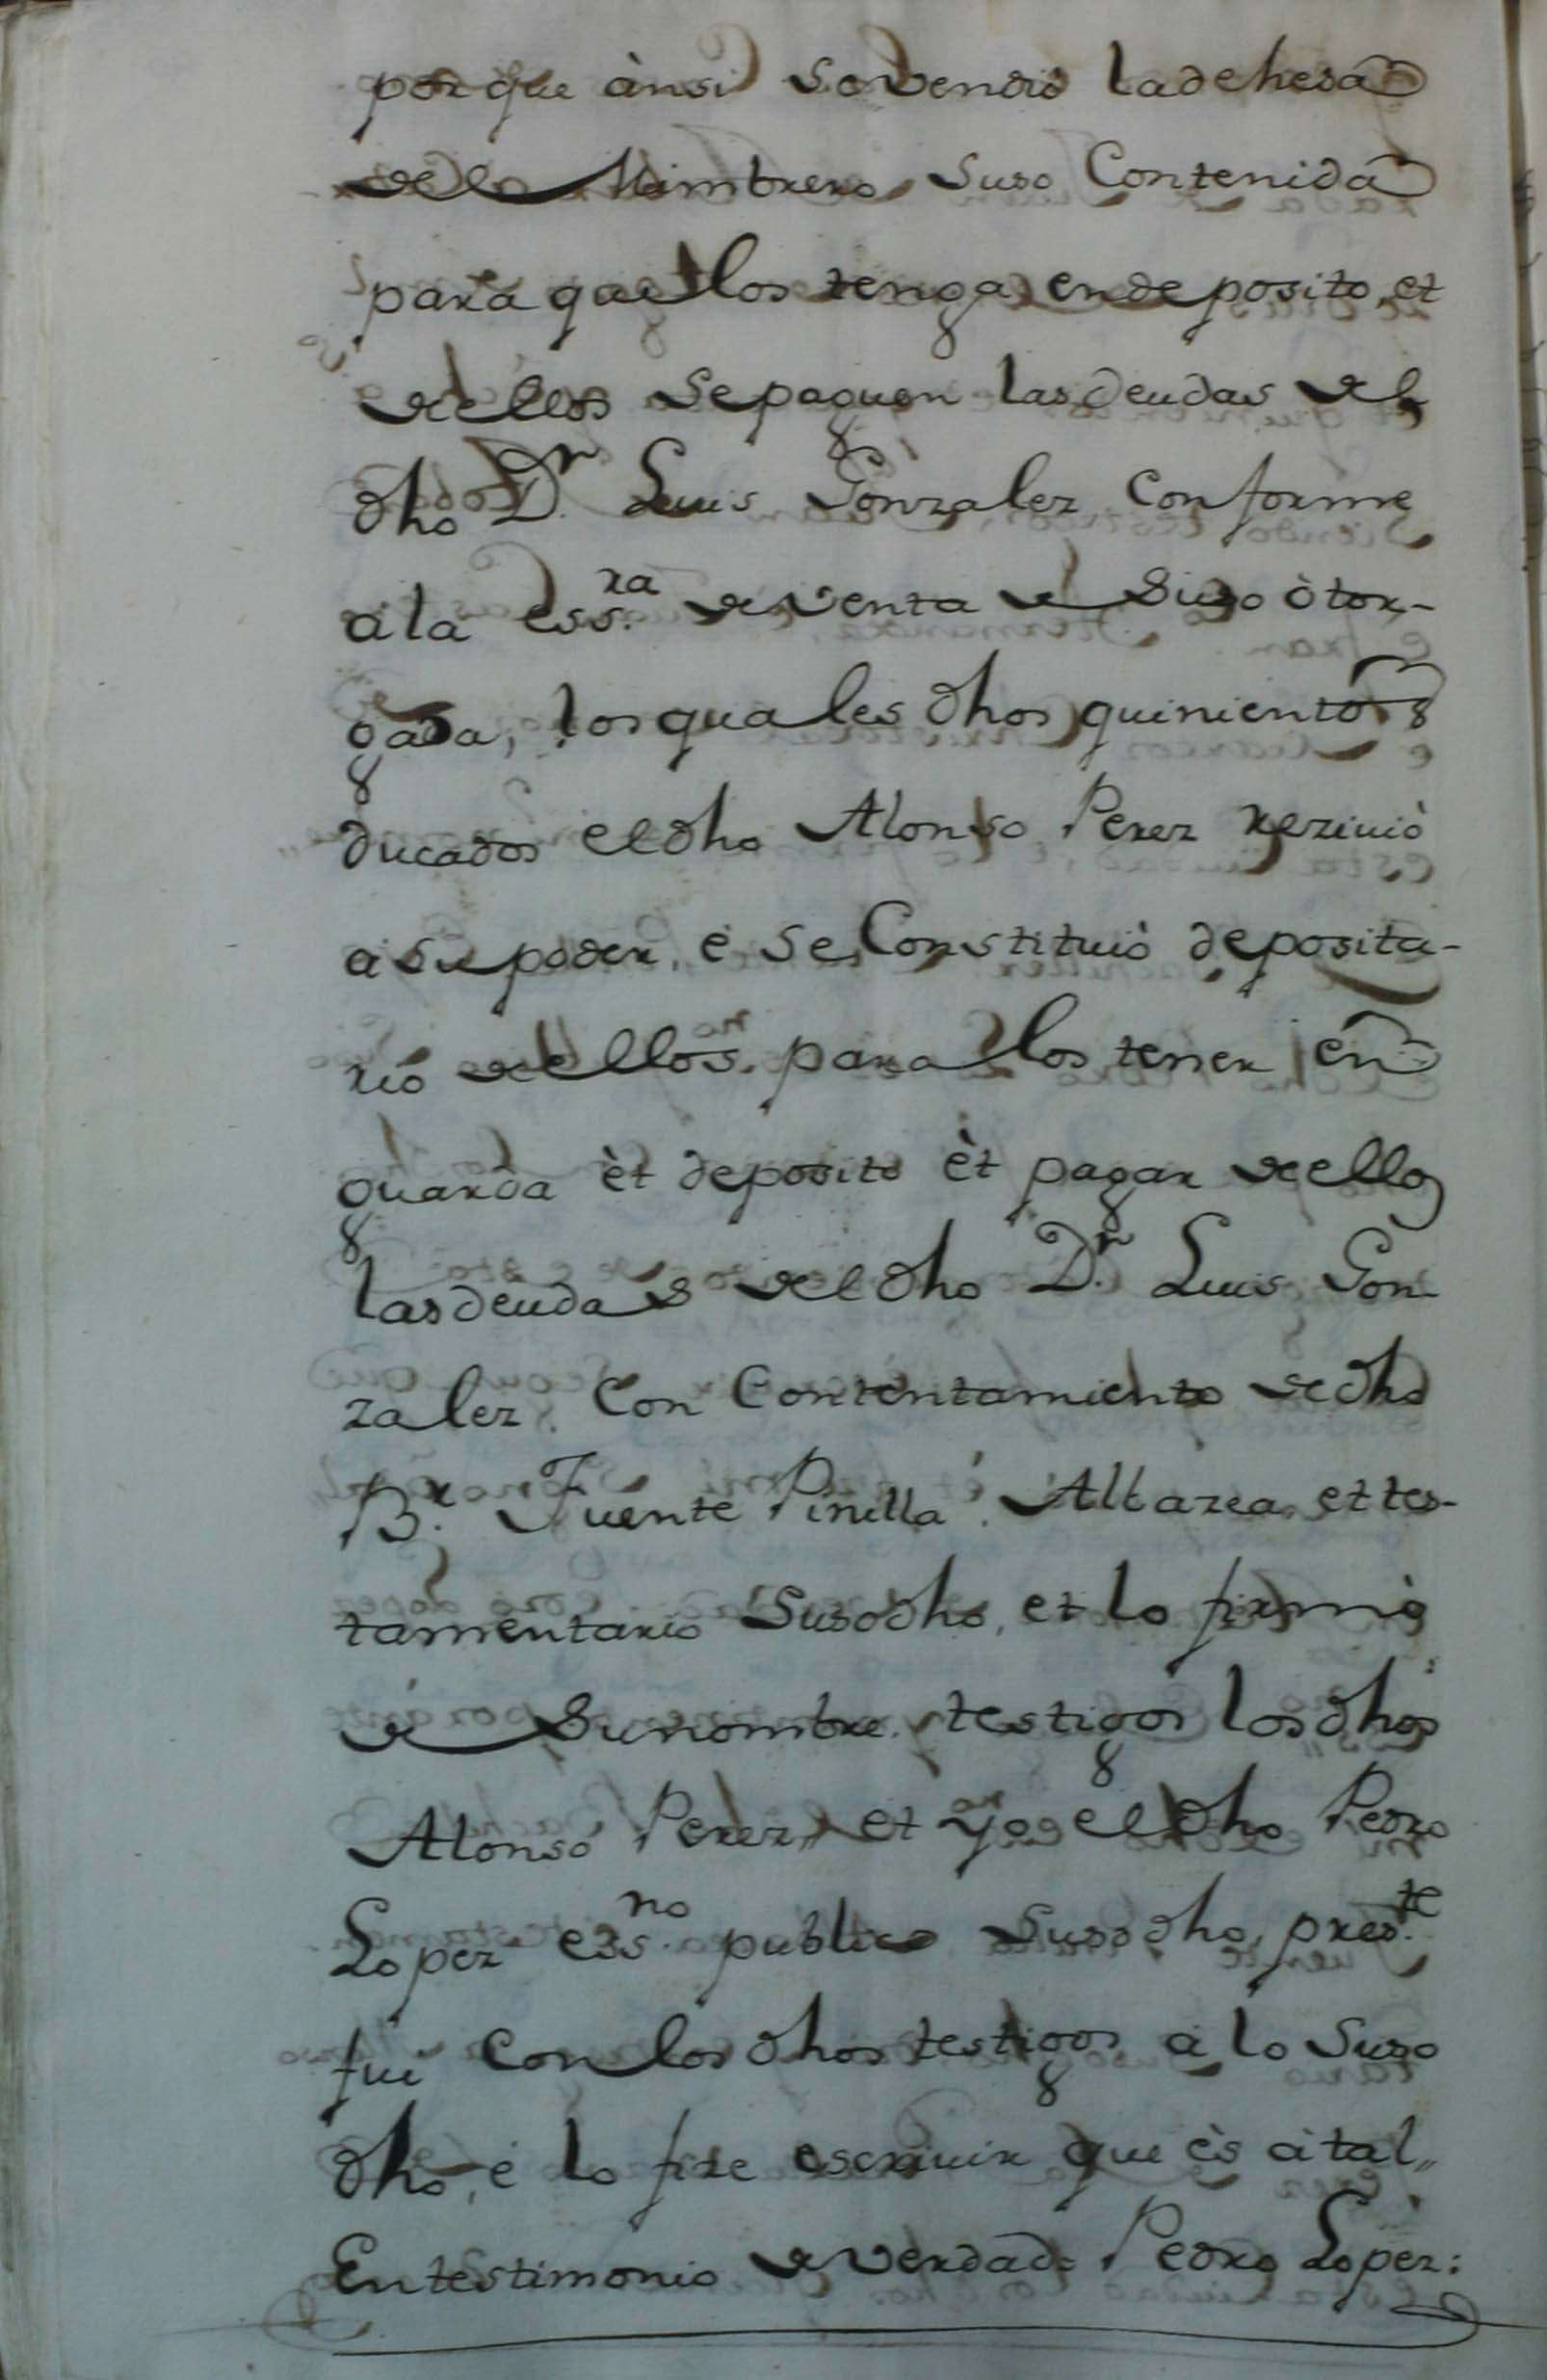 porque ànsi se vendio la dehesa
de la Mimbrera suso Contenida
para que los tenga en deposito, et
de ellos se paguen las deudas del
dho D.r Luis Gonzalez Conforme
a la ess.ra de venta de suso òtor-
gada, los quales dhos quinientos
ducados el dho Alonso Perez rezivió
a su poder, é se Constituió deposita-
rió de ellos, para los tener en
guarda èt deposito èt pagar de ellos
las deudas del dho D.r Luis Gon-
zalez. Con Contentamiento de dho
B.r Fuente Pinilla. Albazea et tes-
tamentario Susodho, et lo firmò
de su nombre. testigos los dhos
Alonso Perez, et Yo el dho Pedro
Lopez ess.no publico Susodho, pres.te
fui Con los dhos testigos a lo Suso
dho, é lo fize escriuir que ès à tal,,
En testimonio de verdad: Pedro Lopez: